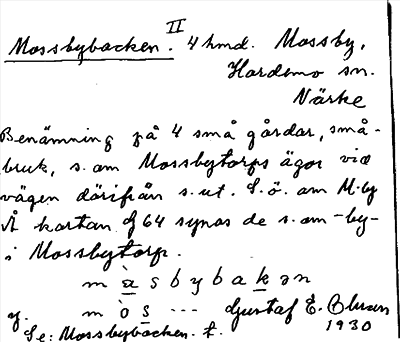 II
Mossbybacken. 4 hmd. Mossby,
Hardemo sn.
Närke
Benämning på 4 små gårdar, små-
bruk, s. om Mossbytorps ägor vid
vägen därifrån s.ut. S.ö. om M-by
Å kartan Ef 64 synas de s. om -by-
i Mossbytorp.
m à s b y b a k ə n
y. m ò s ... Gustaf E. Blman
Se: Mossbybacken. 1. 1930